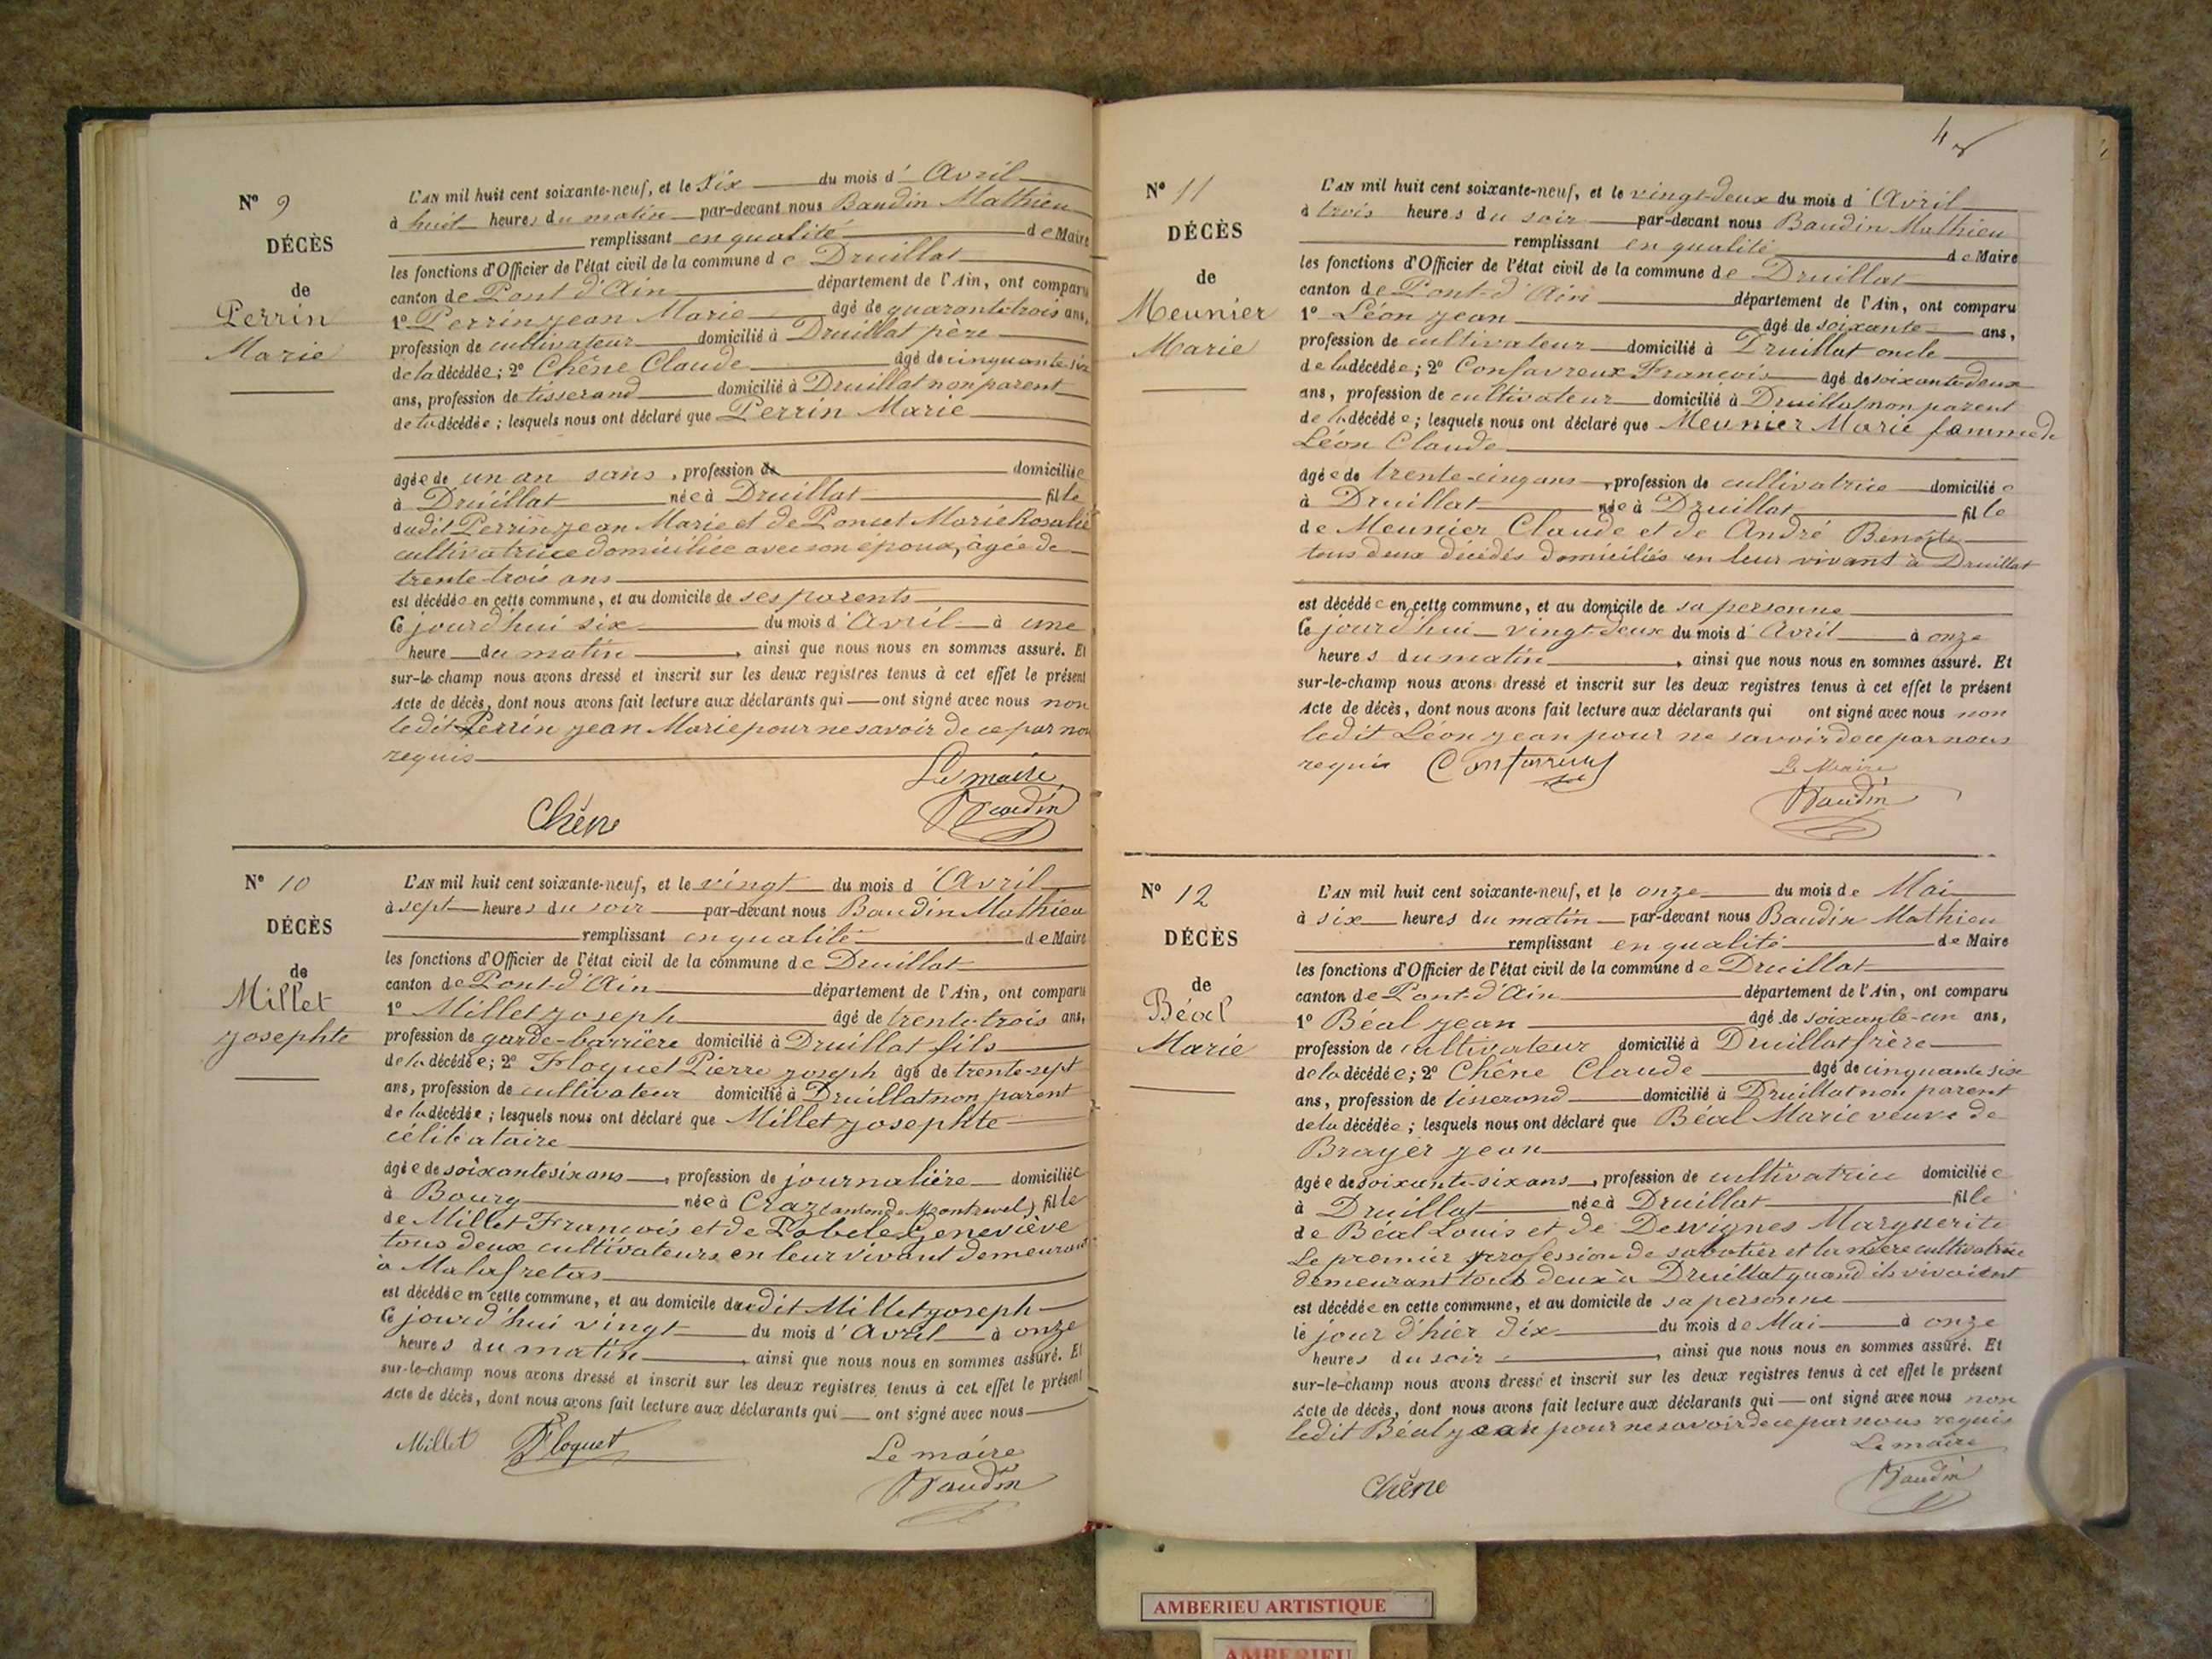 N° 9
DÉCÈS
de
Perrin
Marie
L'AN mil huit cent soixante-neuf, et le Six du mois d' Avril
à huit heures du matin par-devant nous Baudin Mathieu
remplissant en qualité de Maire
les fonctions d'Officier de l'état civil de la commune de Druillat
canton de Pont d'Ain département de l'Ain, ont comparu
1° Perrin jean Marie âgé de quarante-trois ans,
profession de cultivateur domicilié à Druillat père
de la décédée; 2° Chêne Claude âgé de cinquante-six
ans, profession de tisserand domicilié à Druillat non parent
de la décédée; lesquels nous ont déclaré que Perrin Marie
âgée de un an sans, profession de domiciliée
à Druillat née à Druillat fille
dudit Perrin jean Marie et de Poncet Marie Rosalie
cultivatrice domiciliée avec son époux, âgée de
trente-trois ans
est décédée en cette commune, et au domicile de ses parents
Ce jourd'hui six du mois d'Avril à une
heure du matin, ainsi que nous nous en sommes assuré. Et
sur-le-champ nous avons dressé et inscrit sur les deux registres tenus à cet effet le présent
Acte de décès, dont nous avons fait lecture aux déclarants qui ont signé avec nous non
ledit Perrin jean Marie pour ne savoir de ce par nous
requis
Le maire
Chêne Baudin
N° 10
DÉCÈS
de
Millet
josephte
L'AN mil huit cent soixante-neuf, et le vingt du mois d'Avril
à sept heures du soir par-devant nous Baudin Mathieu
remplissant en qualité de Maire
les fonctions d'Officier de l'état civil de la commune de Druillat
canton de Pont-d'Ain département de l'Ain, ont comparu
1° Millet joseph âgé de trente-trois ans,
profession de garde-barrière domicilié à Druillat fils
de la décédée; 2° Floquet Pierre joseph âgé de trente-sept
ans, profession de cultivateur domicilié à Druillat non parent
de la décédée; lesquels nous ont déclaré que Millet josephte
célibataire
âgée de soixante six ans, profession de journalière domiciliée
à Bourg née à Craz (canton de Montrevel) fille
de Millet François et de Geneviève
tous deux cultivateurs en leur vivant demeurant
à Malafretas
est décédée en cette commune, et au domicile dudit Millet joseph
Ce jourd'hui vingt du mois d'Avril à onze
heures du matin, ainsi que nous nous en sommes assuré. Et
sur-le-champ nous avons dressé et inscrit sur les deux registres tenus à cet effet le présent
Acte de décès, dont nous avons fait lecture aux déclarants qui ont signé avec nous
Millet Floquet Le maire
Baudin
N° 11
DÉCÈS
de
Meunier
Marie
L'AN mil huit cent soixante-neuf, et le vingt-deux du mois d'Avril
à trois heures du soir par-devant nous Baudin Mathieu
remplissant en qualité de Maire
les fonctions d'Officier de l'état civil de la commune de Druillat
canton de Pont-d'Ain département de l'Ain, ont comparu
1° Léon jean âgé de soixante ans,
profession de cultivateur domicilié à Druillat oncle
de la décédée; 2° Confavreux François âgé de soixante deux
ans, profession de cultivateur domicilié à Druillat non parent
de la décédée; lesquels nous ont déclaré que Meunier Marie femme de
Léon Claude
âgée de trente-cinq ans, profession de cultivatrice domiciliée
à Druillat née à Druillat fille
de Meunier Claude et de André Benoite
tous deux décédés domiciliés en leur vivant à Druillat
est décédée en cette commune, et au domicile de sa personne
Ce jourd'hui vingt-deux du mois d'Avril à onze
heures du matin, ainsi que nous nous en sommes assuré. Et
sur-le-champ nous avons dressé et inscrit sur les deux registres tenus à cet effet le présent
Acte de décès, dont nous avons fait lecture aux déclarants qui ont signé avec nous non
ledit Léon jean pour ne savoir de ce par nous
requis Confavreux Le Maire
Baudin
N° 12
DÉCÈS
de
Béal
Marie
L'AN mil huit cent soixante-neuf, et le onze du mois de Mai
à six heures du matin par-devant nous Baudin Mathieu
remplissant en qualité de Maire
les fonctions d'Officier de l'état civil de la commune de Druillat
canton de Pont-d'Ain département de l'Ain, ont comparu
1° Béal jean âgé de soixante-un ans,
profession de cultivateur domicilié à Druillat frère
de la décédée; 2° Chêne Claude âgé de cinquante six
ans, profession de tisserand domicilié à Druillat non parent
de la décédée; lesquels nous ont déclaré que Béal Marie veuve de
Brayer jean
âgée de soixante-six ans, profession de cultivatrice domiciliée
à Druillat née à Druillat fille
de Béal Louis et de Desvignes Marguerite
Le premier profession de sabotier et la mère cultivatrice
demeurant tout deux à Druillat quand ils vivaient
est décédée en cette commune, et au domicile de sa personne
le jour d'hier dix du mois de Mai à onze
heures du soir, ainsi que nous nous en sommes assuré. Et
sur-le-champ nous avons dressé et inscrit sur les deux registres tenus à cet effet le présent
Acte de décès, dont nous avons fait lecture aux déclarants qui ont signé avec nous non
ledit Béal jean pour ne savoir de ce par nous requis
Le maire
Chêne Baudin
AMBERIEU ARTISTIQUE
AMBERIEU